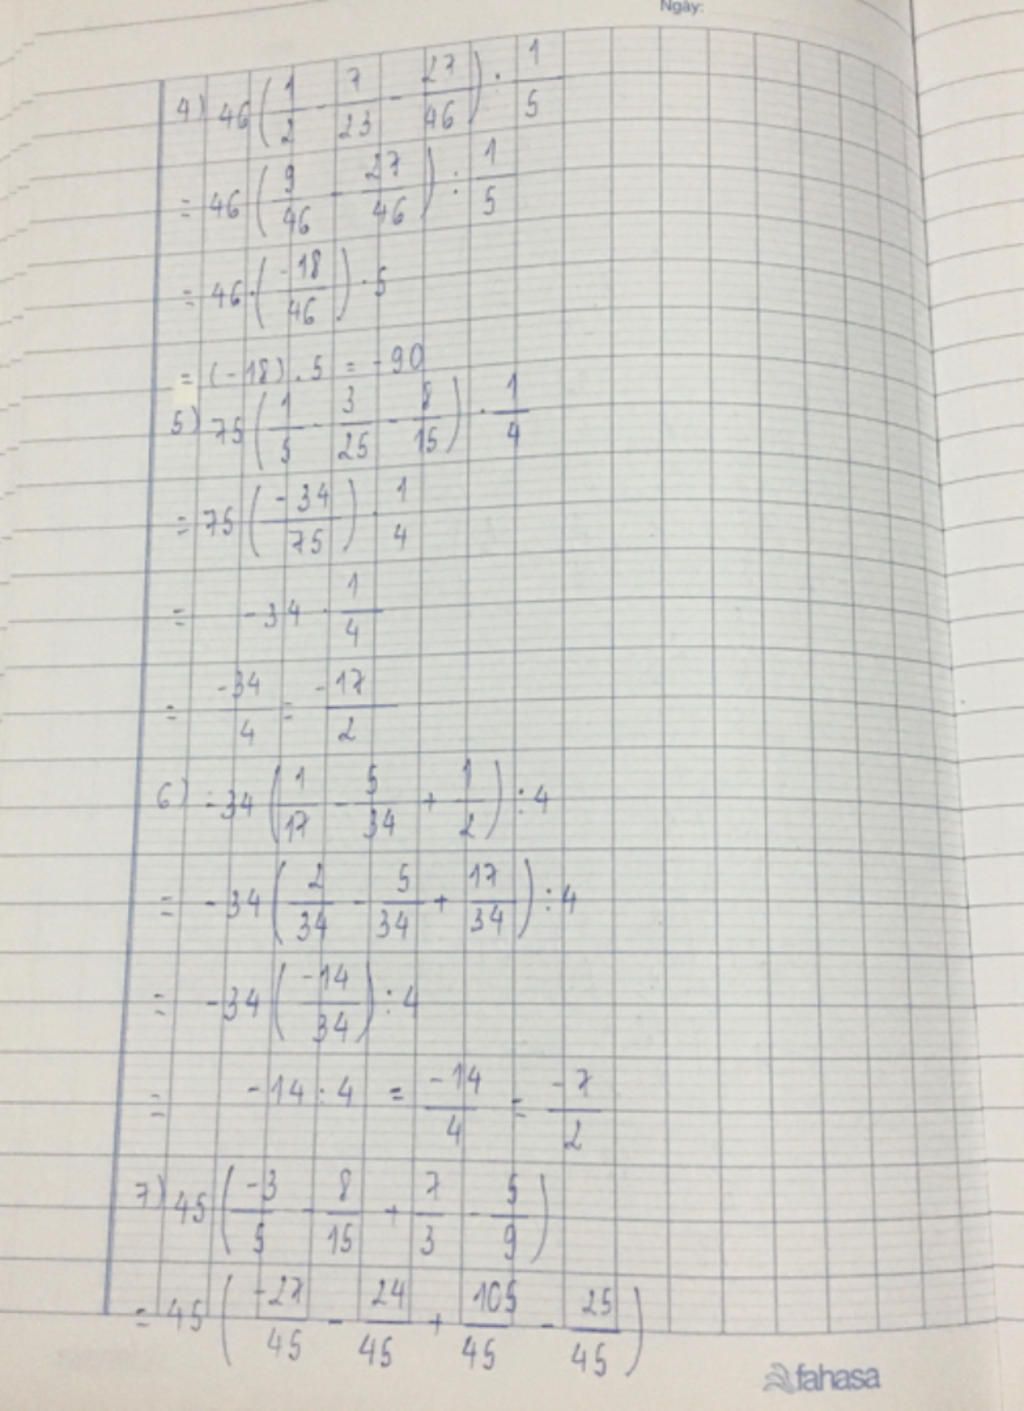 Ngày:
4) 46 (1/2 - 7/23 - 27/46) : 1/5
= 46 (9/46 - 27/46) : 1/5
= 46 . (-18/46) . 5
= (-18) . 5 = -90
5) 75 (1/5 - 3/25 - 8/15) . 1/4
= 75 (-34/75) . 1/4
= -34 . 1/4
= -34/4 = -17/2
6) -34 (1/17 - 5/34 + 1/2) : 4
= -34 (2/34 - 5/34 + 17/34) : 4
= -34 (-14/34) : 4
= -14 : 4 = -14/4 = -7/2
7) 45 (-3/5 - 8/15 + 7/3 - 5/9)
= 45 (-27/45 - 24/45 + 105/45 - 25/45)
fahasa